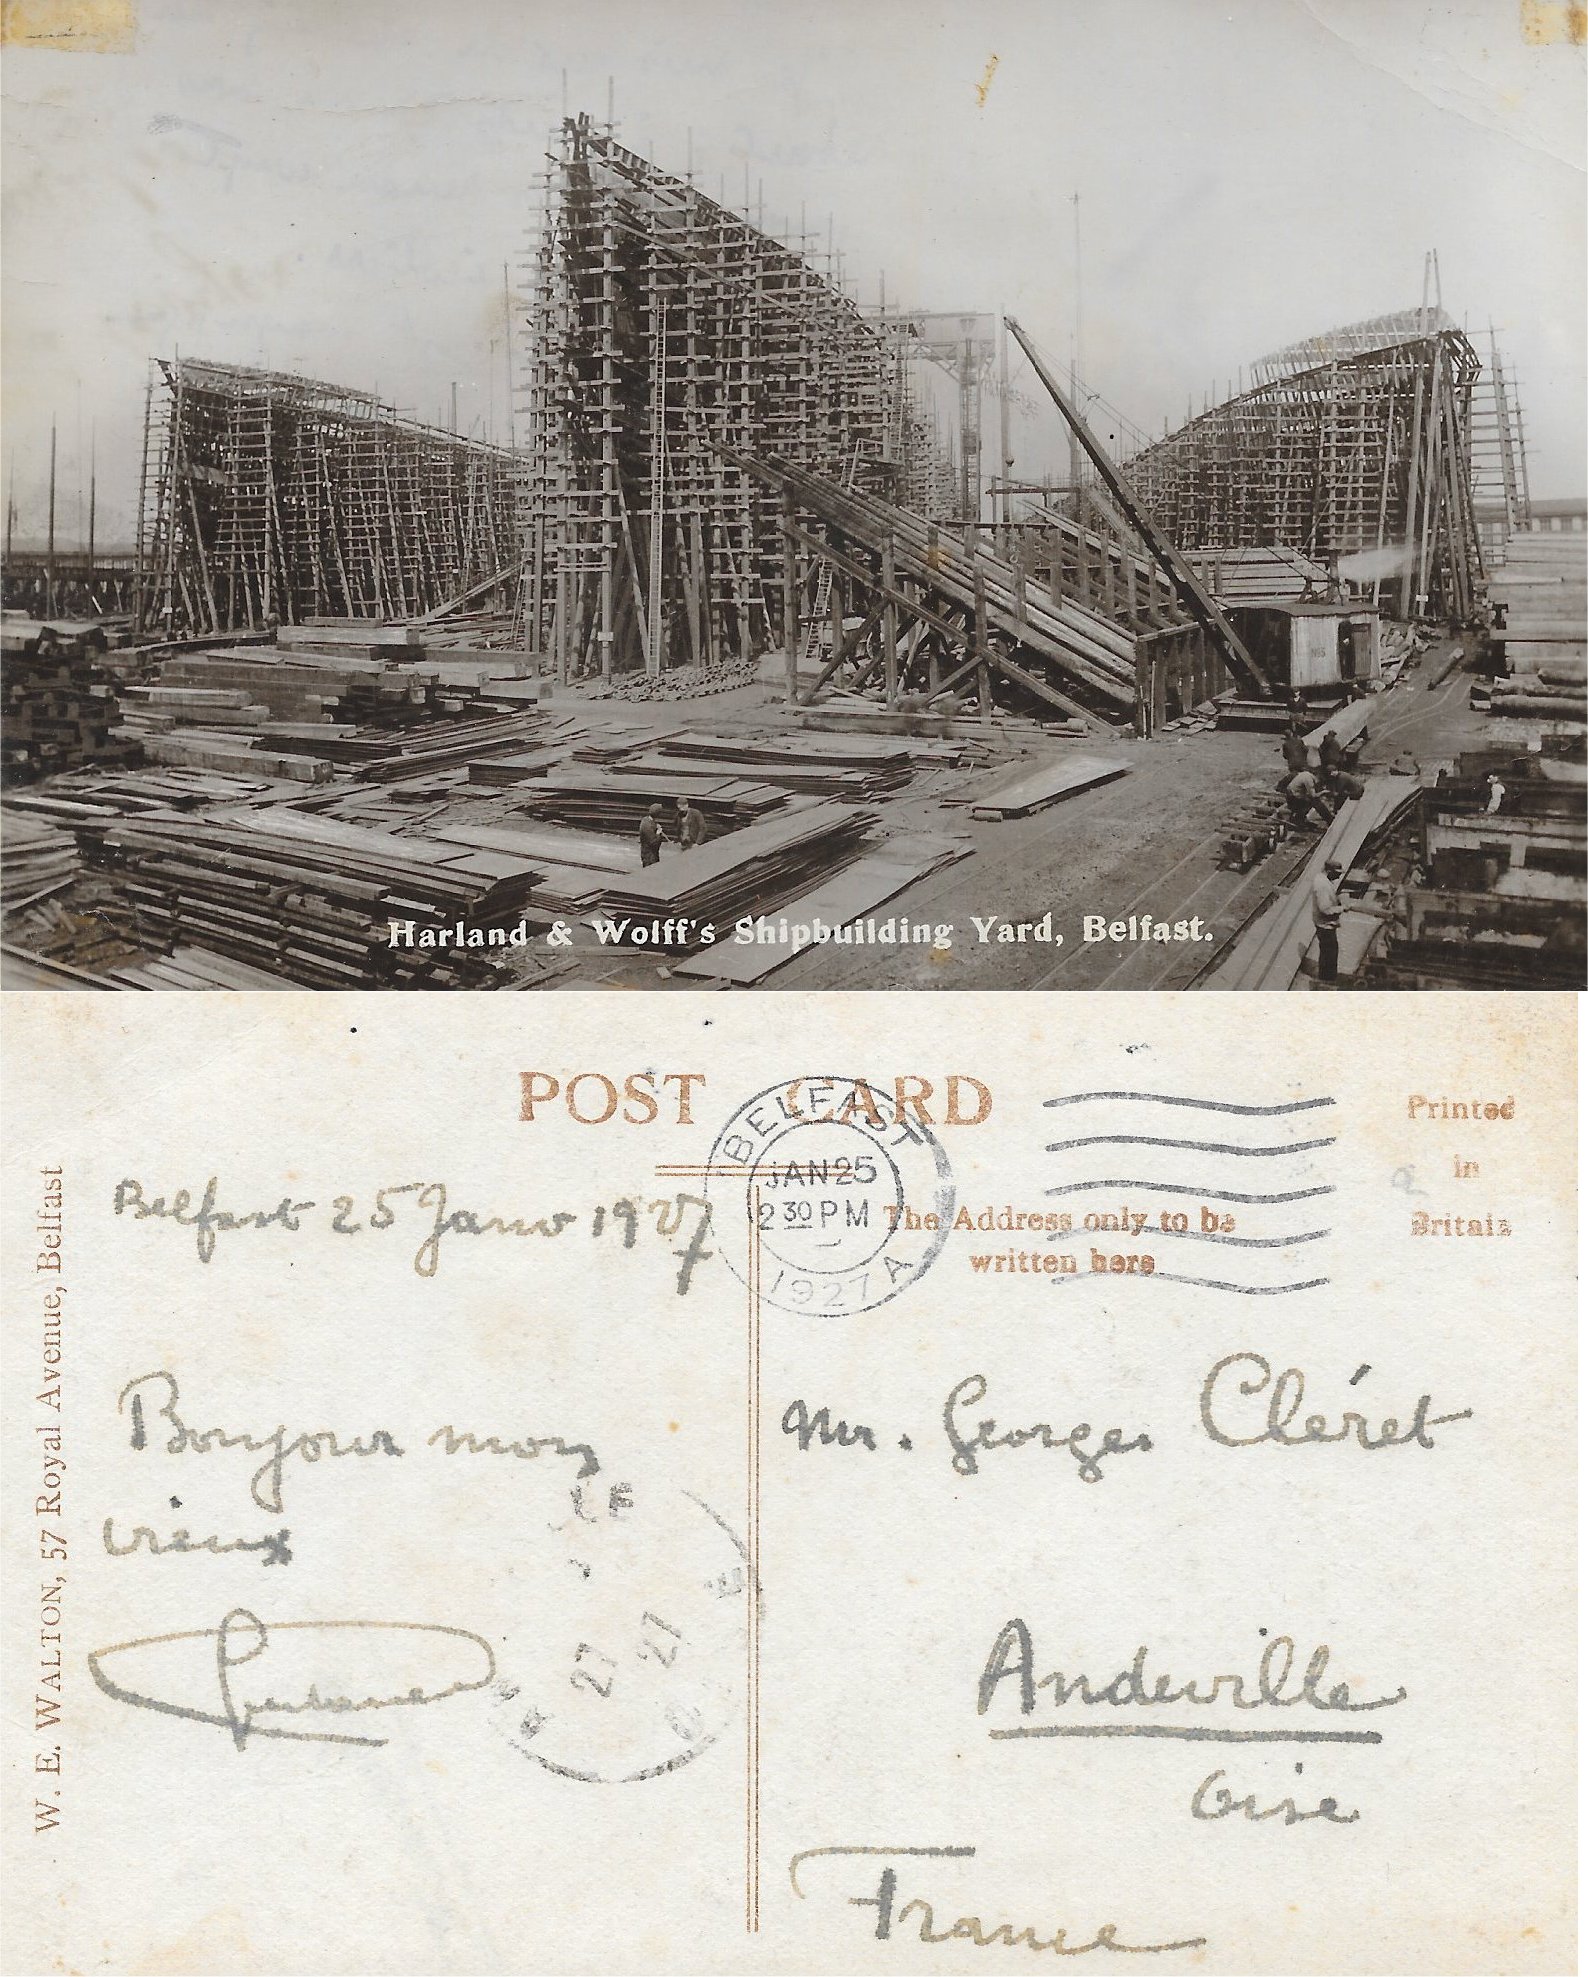 Harland & Wolff's Shipbuilding Yard, Belfast.
POST CARD
BELFAST
JAN 25
2 30 PM
1927 A
The Address only to be
written here
Printed
in
Britain
W. E. WALTON, 57 Royal Avenue, Belfast
Belfast 25 Janv 1927
Bonjour mon
vieux
27
27
Mr. Georges Cléret
Andeville
Oise
France